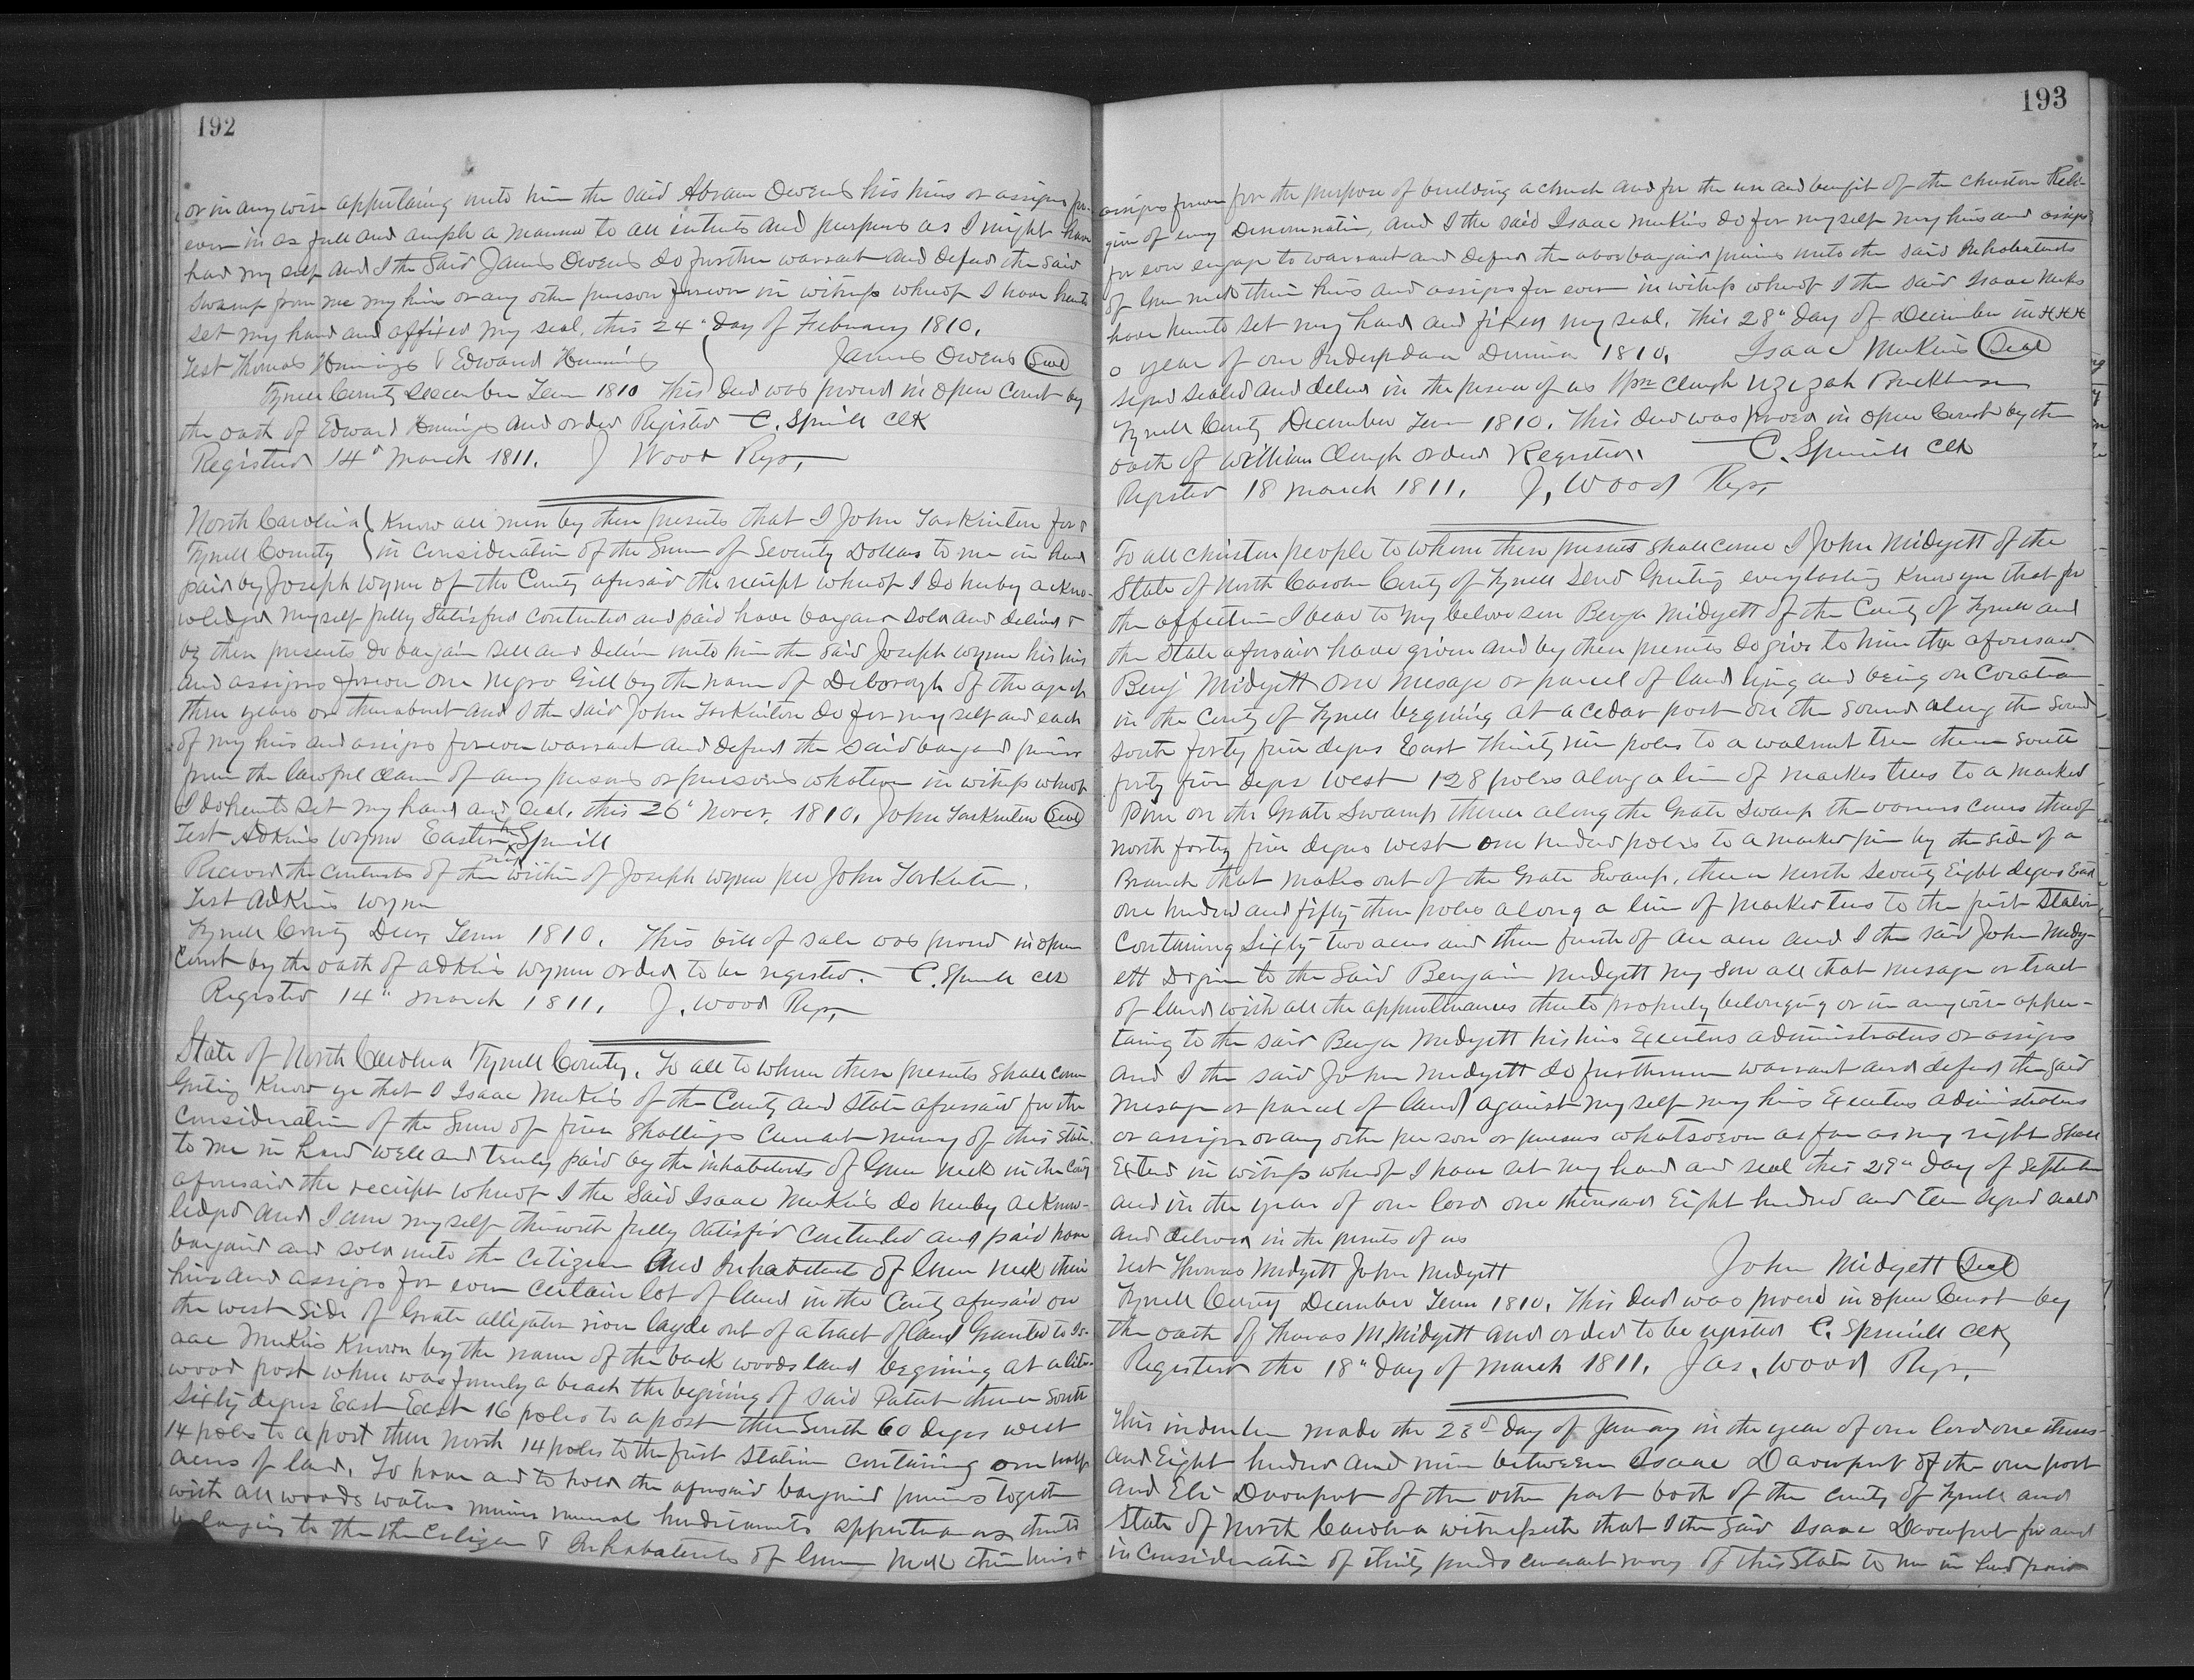 192
or in any wise appertaing unto him the said Abram Owens his hirs or assigns for-
ever in as full and ample a manner to all intents and purposes as I might have
had my self and I the Said James Owens do further warrant and defend the said
Swamp from me my hirs or any other person forever in witness whereof I have hereunto
set my hand and affixed my seal, this 24" day of February 1810.
Test Thomas Hennings & Edward Hennings James Owens Seal
Tyrrell County December Term 1810 This deed was proved in open Court by
the oath of Edward Hennings and orded Registed C. Spruill Clk
Registed 14" March 1811. J Wood Regr,
North Carolina Know all men by these presents that I John Tarkinton for &
Tyrrell County in consideration of the Sum of Seventy Dollars to me in hand
paid by Joseph Wynn of the County aforesaid the receipt whereof I do hereby ackno-
wledged myself fully Satisfied contented and paid have bargain sold and deliverd &
by these presents do bargain sell and deliver unto him the said Joseph Wynn his hirs
and assigns forever one negro Girl by the name of Deboragh of the age of
three years or thereabout and I the said John Tarkinton do for my self and each
of my hirs and assigns forever warrant and defend the said bargand
from the lawful claim of any persons or persons whatever in witness whereof
I do hereunto set my hand and seal, this 26" Novr. 1810. John Tarkinton Seal
Test Adkins Wynn Easter Spruill
Received the contents of the within of Joseph Wynn per John Tarkinton.
Test Adkins Wynn
Tyrrell County Decr, Term 1810. This bill of sale was proved in open
Court by the oath of Adkins Wynn orded to be registed. C. Spruill Clk
Registed 14" March 1811. J. Wood Regr,
State of North Carolina Tyrrell County. To all to whom these presents shall come
Greting Know ye that I Isaac Meekins of the County and State aforesaid for the
consideration of the Sum of five Shallings Currant money of this State
to me in hand well and truly paid by the inhabetents of Gum Neck in the County
aforesaid the receipt whereof I the Said Isaac Meekins do hereby acknow-
ledged and I am myself therewith fully Satisfid contented and paid have
bargaind and sold unto the Citizen and Inhabetents of Gum Neck their
hirs and assigns for ever certain lot of land in the County aforesaid on
the west side of Grate alligator river layde out of a tract of land Granted to Is-
aac Meekins Known by the name of the back woods land begining at a lite-
wood post where was formerly a beach the begining of said Patent thence South
Sixty degres East East 16 poles to a post then South 60 degrs west
14 poles to a post then North 14 poles to the first Station contairing one half
acres of land. To have and to hold the aforesaid bargained premises together
with all woods waters mines minnerals herediments appertenances thereto
belonging to the the Citizen & Inhabatents of Gum Neck their hirs &
193
assigns forever for the purpose of building a church and for the use and benefit of the christen Reli-
gion of every Denomination, and I the said Isaac Meekins do for my self my hirs and assigns
for ever engage to warrant and defend the above bargaind premises unto the said Inhabatents
of Gum neck their hirs and assigns for ever in witness whereof I the said Isaac Meekins
have hereunto set my hand and fixed my seal. This 28" day of December in XXX
o year of our Independance Dominn 1810. Isaac Meekins Seal
signed sealed and deliverd in the presence of us Wm Clough Uzzah
Tyrrell County December Term 1810. This deed was proved in open Court by the
oath of William Clough orded Registed. C. Spruill Clk
Registed 18 March 1811. J. Wood Regr,
To all christen people to whom these presents shall come I John Midyett of the
State of North Carolin County of Tyrrell Send Greeting everylasting Know ye that for
the affection I bear to my belove son Benja Midyett of the County of Tyrrell and
the State aforesaid have given and by these presents do give to him the aforesaid
Benj Midyett one mesage or parcel of land lying and being on Coratan
in the County of Tyrrell begining at a cedar post on the Sound along the Sound
South forty five degres East thirty nin poles to a walnut tree thence South
forty five degrs West 128 poles along a line of markes trees to a marked
Pine on the Grate Swamp thence along the Grate Swamp the varrious corses thereof
north forty five degres west one hundred poles to a marked pine by the side of a
Branch that makes out of the Grate Swamp, thence north Seventy Eight degres East
one hundred and fifty three poles along a line of marked trees to the first Station
Containing Sixty two acres and three fourth of an acre and I the said John Midy-
ett do give to the said Benjain Midyett my Son all that mesage or tract
of land with all the appurtenances thereto properly belonging or in anywise apper-
taing to the said Benja Midyett his hirs Executers administrators or assigns
and I the said John Midyett do furthermore warrant and defend the said
mesage or parcel of land against my self my hirs Executers administrators
or assigns or any other person or persons whatsoever as far as my right shall
Extend in witness whereof I have set my hand and seal this 29" day of September
and in the year of our lord one thousand Eight hundred and ten signed seald
and deliverd in the presents of us
Test Thomas Midyett John Midyett John Midyett Seal
Tyrrell County December Term 1810. This deed was proved in open Court by
the oath of Thomas M. Midyett and orded to be registed C. Spruill Clk
Registerd the 18" day of March 1811. Jas. Wood Regr,
This indenture made the 23d day of January in the year of our lord one thous-
and Eight hundred and nine between Isaac Davenport of the one part
and Eli Davenport of the other part both of the County of Tyrrell and
State of North Carolina witnesseth that I the said Isaac Davenport for and
in consideration of thirty pounds currant money of this State to me in hand paid